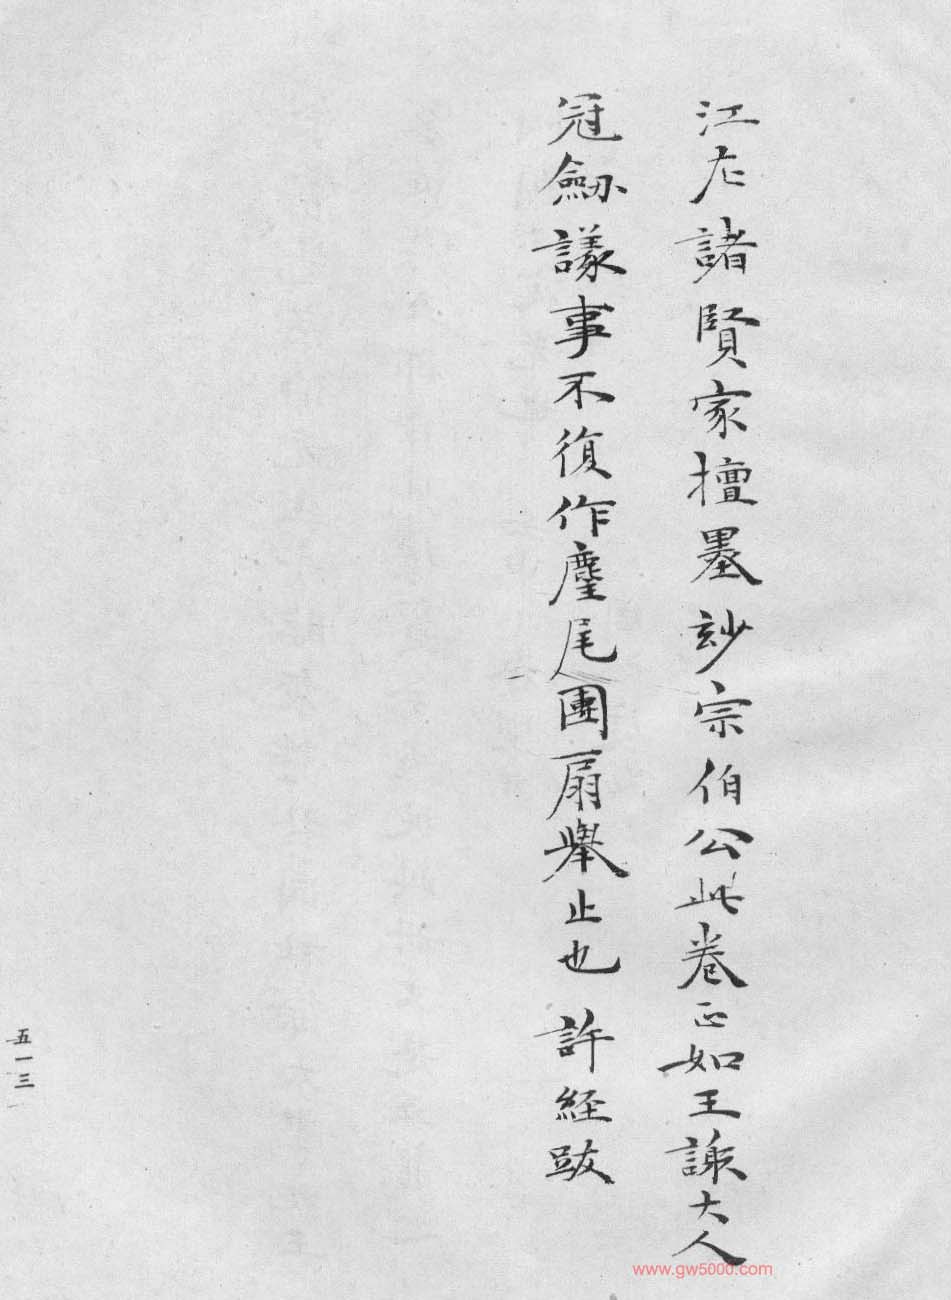 江左諸賢家擅墨妙宗伯公此卷正如王謝大人
冠劒議事不復作麈尾團扇舉止也 許経跋
五一三
www.gw5000.com